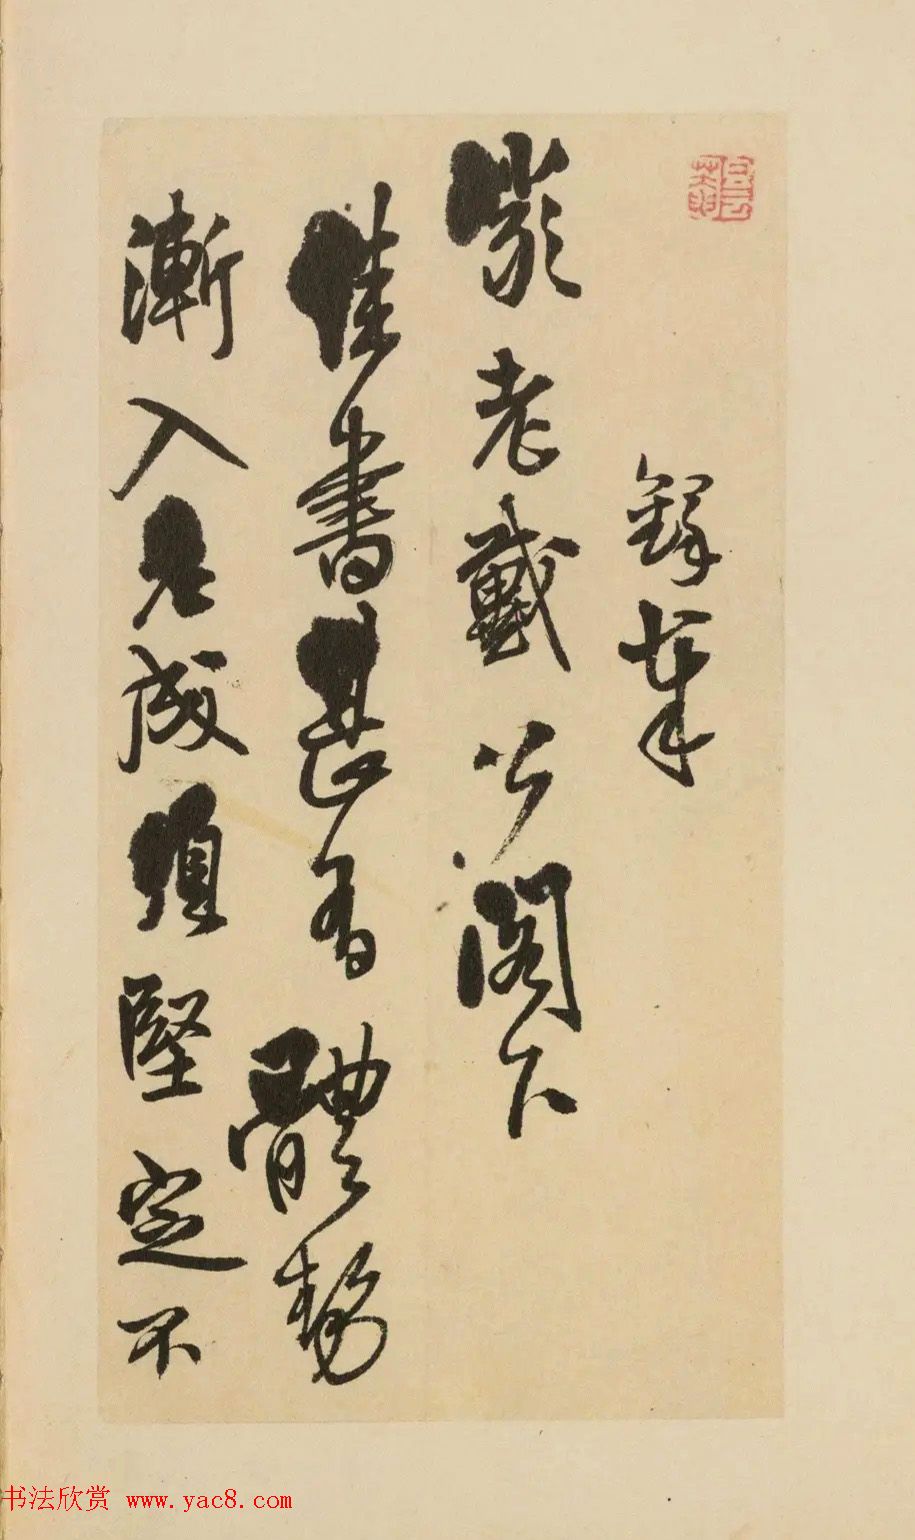 鐸奉
老戴公閣下
佳書甚有體勢
漸入老成須堅定不
书法欣赏 www.yac8.com